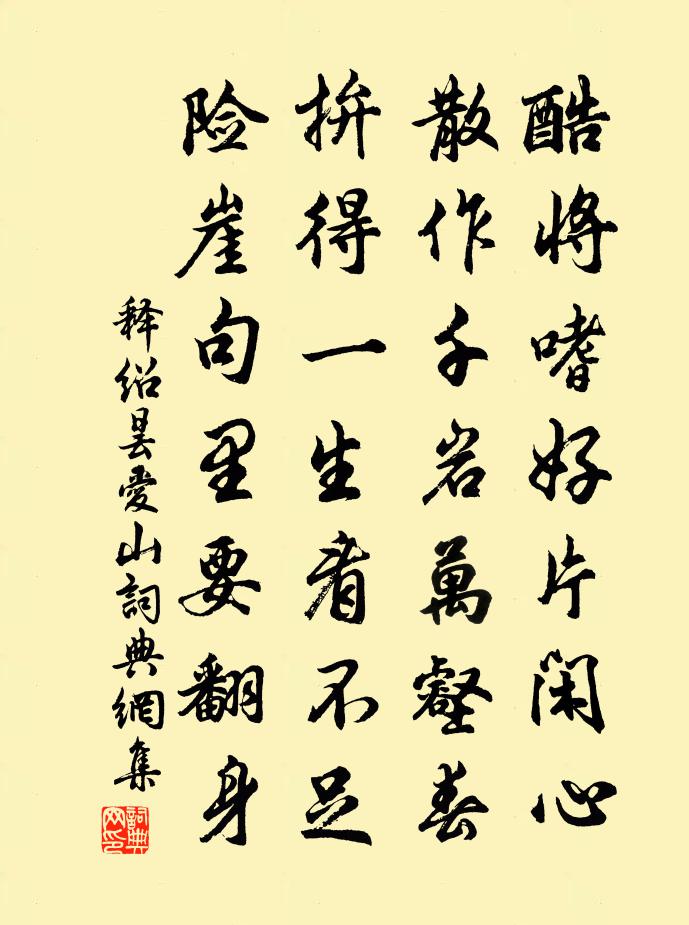 酷将嗜好片闲心
散作千岩萬壑春
拚得一生看不足
险崖句里要翻身
释绍昙爱山詞典網集
詞典网印